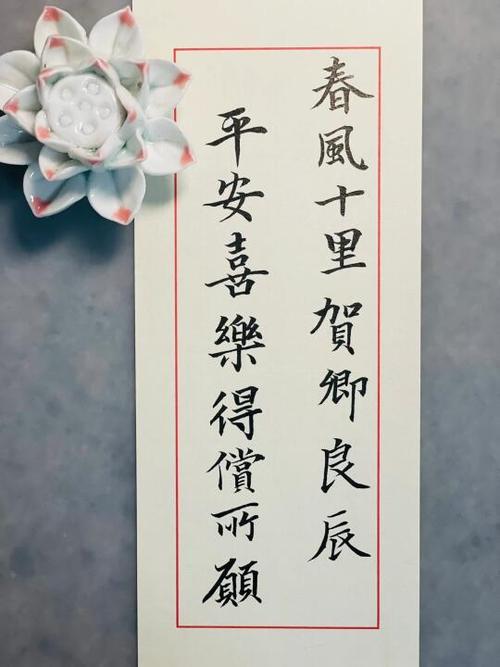 春風十里賀卿良辰
平安喜樂得償所願